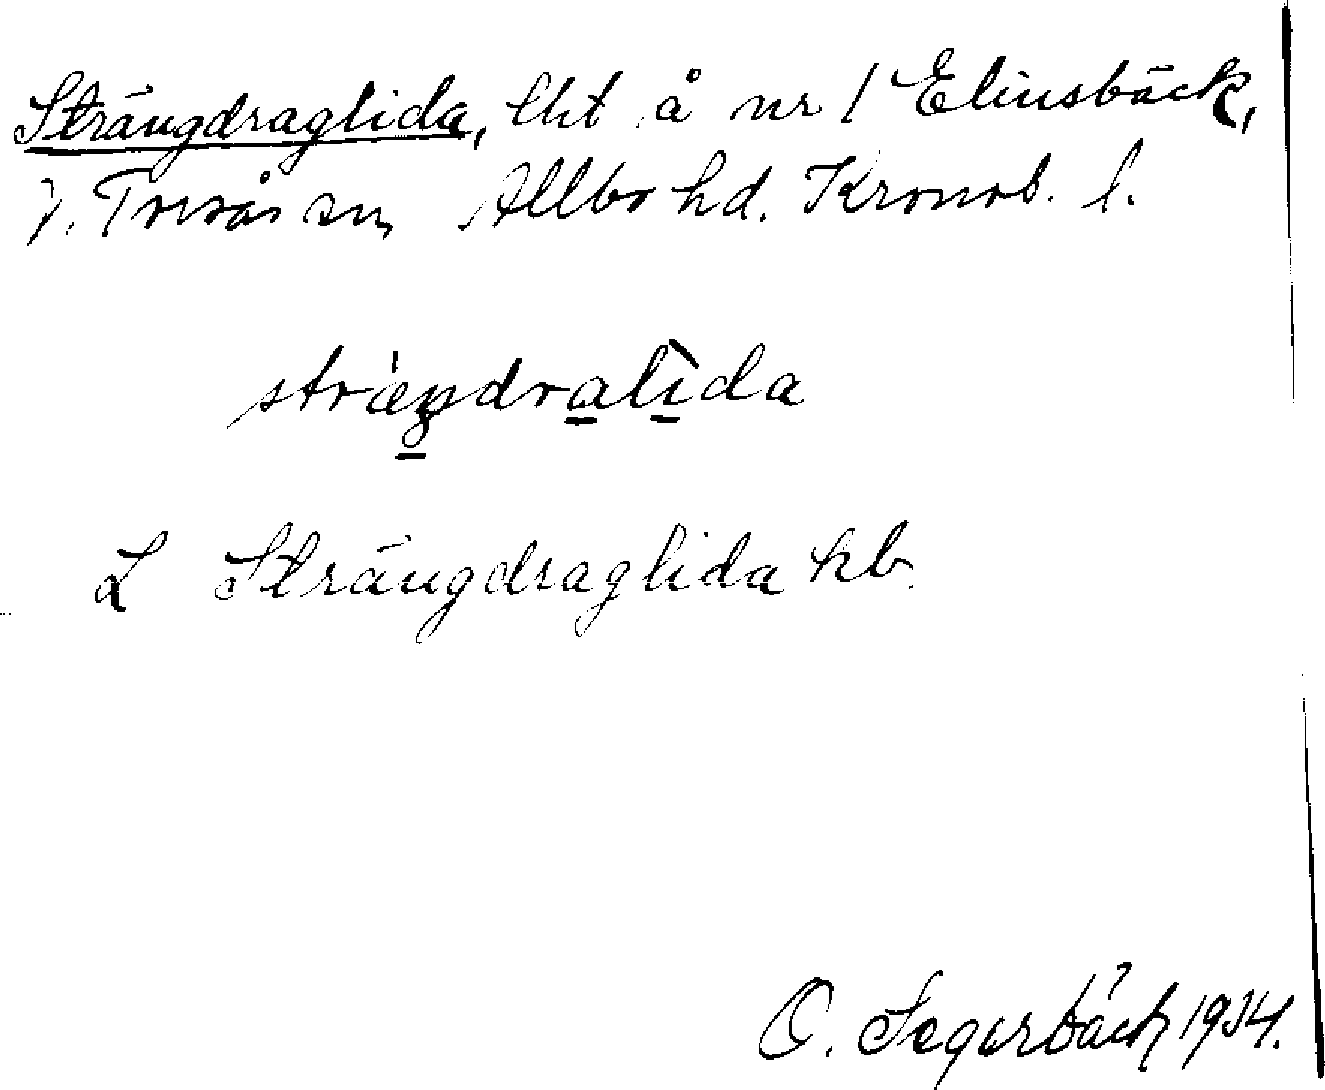 Strängdraglida, lht å nr 1 Elinsbäck,
V. Torsås sn, Allbo hd. Kronob. l.
strængdralìda
L Strängdraglida kb.
O. Segerbäck 1934.